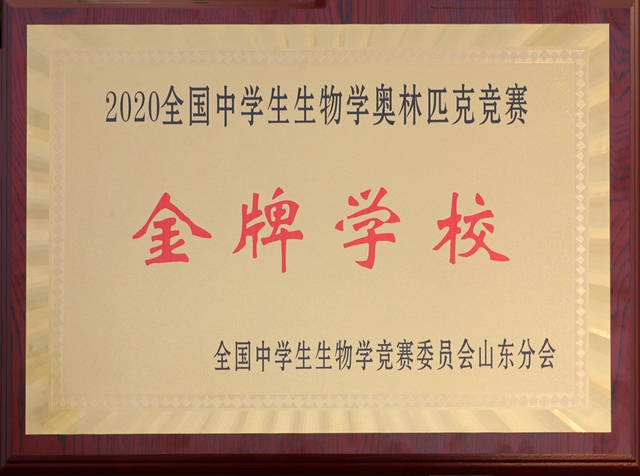 2020全国中学生生物学奥林匹克竞赛
金牌学校
全国中学生生物学竞赛委员会山东分会